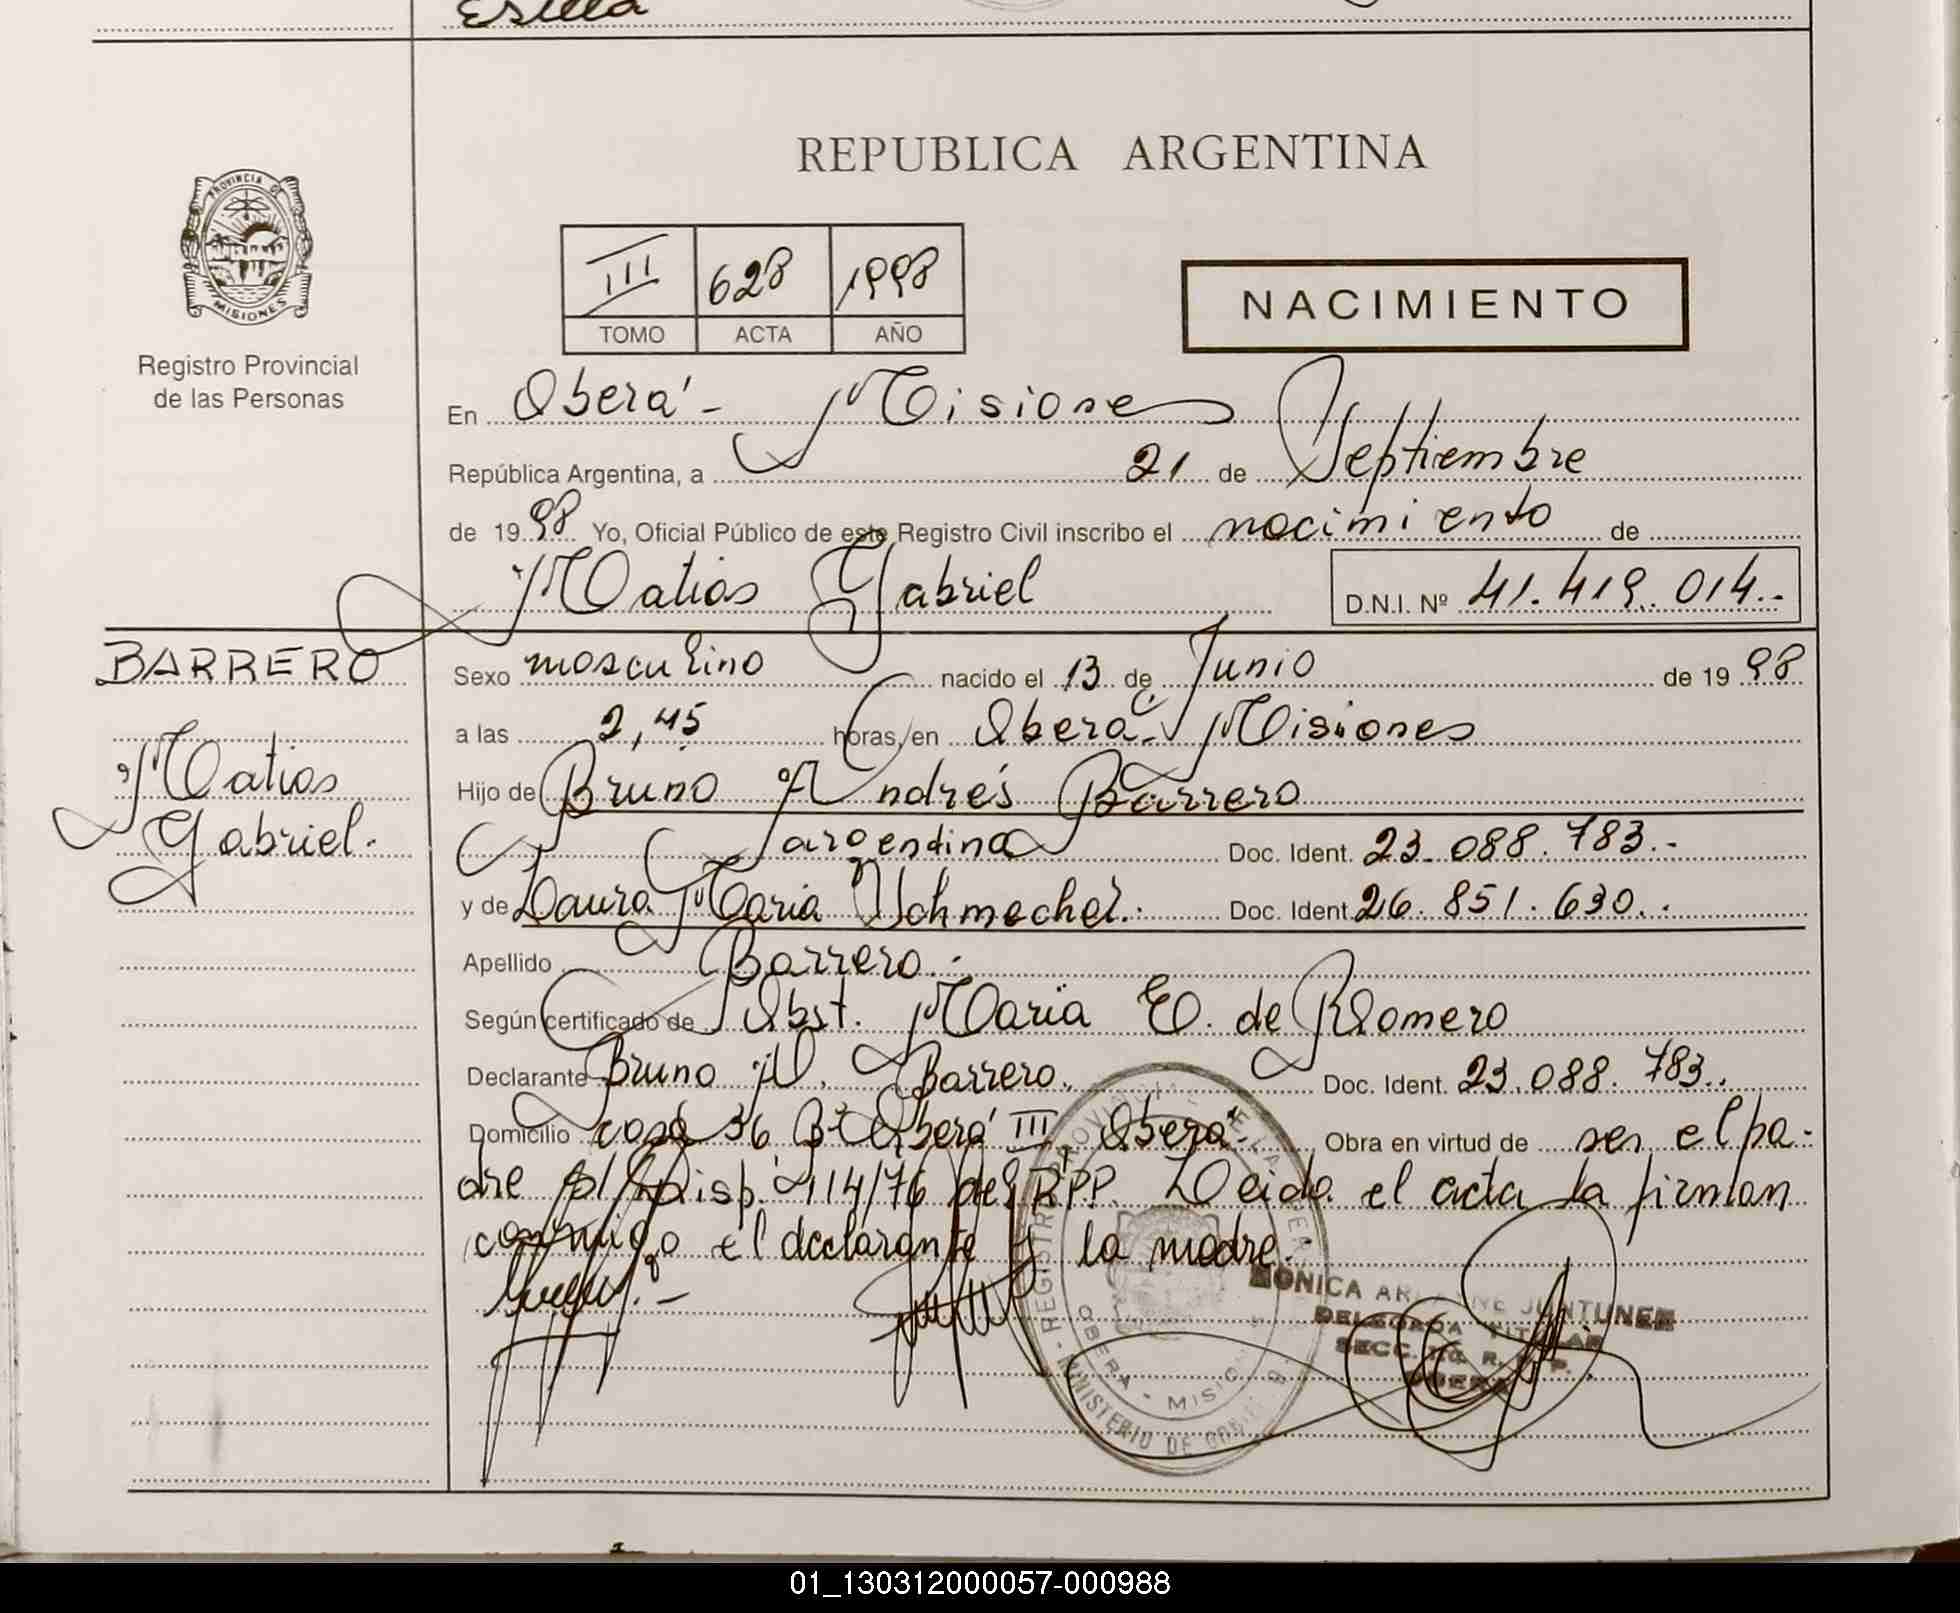 Estela
REPUBLICA ARGENTINA
PROVINCIA DE
MISIONES
Registro Provincial
de las Personas
III 628 1998
TOMO ACTA AÑO
NACIMIENTO
En Oberá - Misiones
República Argentina, a 21 de Septiembre
de 1998 Yo, Oficial Público de este Registro Civil inscribo el nacimiento de
Matias Gabriel D.N.I. Nº 41.419.014.-
BARRERO
Matias
Gabriel.
Sexo masculino nacido el 13 de Junio de 1998
a las 2,45 horas, en Oberá - Misiones
Hijo de Bruno Andrés Barrero
argentina Doc. Ident. 23.088.783.-
y de Laura Maria Schmechel.- Doc. Ident 26.851.630.-
Apellido Barrero.-
Según certificado de Obst. Maria E. de Romero
Declarante Bruno A. Barrero. Doc. Ident. 23.088.783.-
Domicilio casa 36 Bº Oberá III Oberá.- Obra en virtud de ser el pa-
dre s/ Disp. 114/76 del RPP. Leida el acta la firman
conmigo el declarante y la madre.
REGISTRO PROVINCIAL DE LAS PERSONAS
OBERA - MISIONES
MINISTERIO DE GOBIERNO
MONICA JUNTUNEN
DELEGADA TITULAR
SECC. R. P. P.
OBERA
01_130312000057-000988